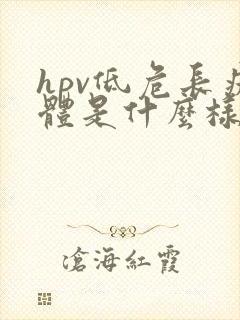 hpv低危長疣
體是什麼樣
滄海紅霞